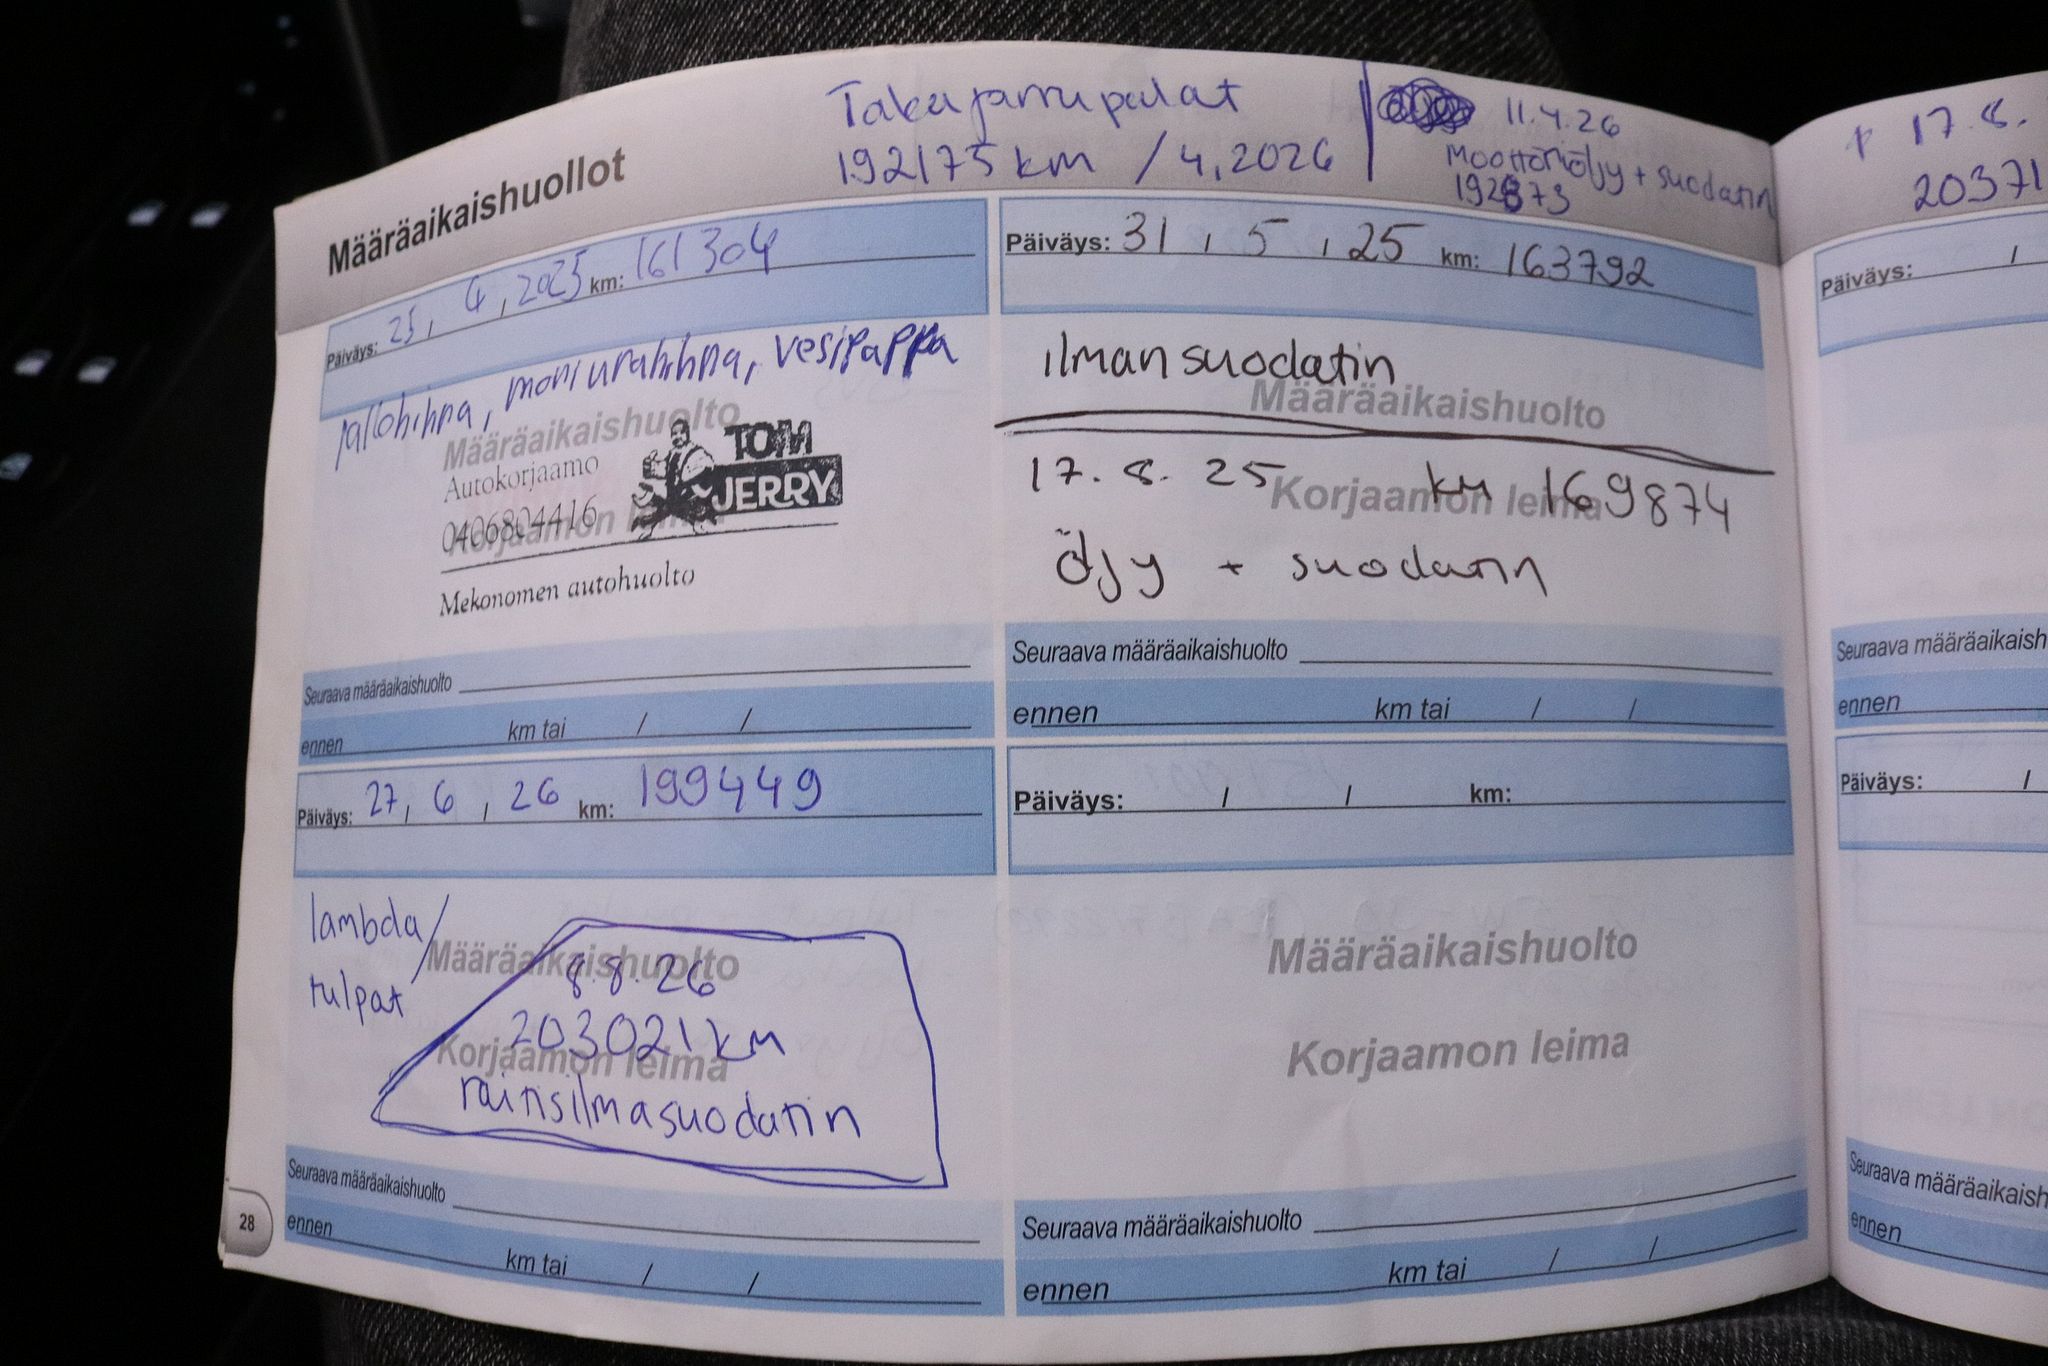 Määräaikaishuollot
Takajarrupalat
192175 km / 4.2026
11.4.26
Moottoriöljy + suodatin
17.8.
20371
Päiväys: 25, 4, 2025 km: 161304
jakohihna, moniurahihna, vesipappa
Määräaikaishuolto
Autokorjaamo
TOM
JERRY
0406804416
Korjaamon leima
Mekonomen autohuolto
Seuraava määräaikaishuolto
ennen km tai / /
Päiväys: 31 , 5 , 25 km: 163792
ilmansuodatin
Määräaikaishuolto
17.8.25 km 169874
Korjaamon leima
öljy + suodatin
Seuraava määräaikaishuolto
ennen km tai / /
Päiväys: 27, 6, 26 km: 199449
lambda/
tulpat
Määräaikaishuolto
8.8.26
203021 km
Korjaamon leima
raitisilmasuodatin
Seuraava määräaikaishuolto
ennen km tai / /
28
Päiväys: / / km:
Määräaikaishuolto
Korjaamon leima
Seuraava määräaikaishuolto
ennen km tai / /
Päiväys: /
Seuraava määräaikaish
ennen
Päiväys: /
Seuraava määräaikaish
ennen